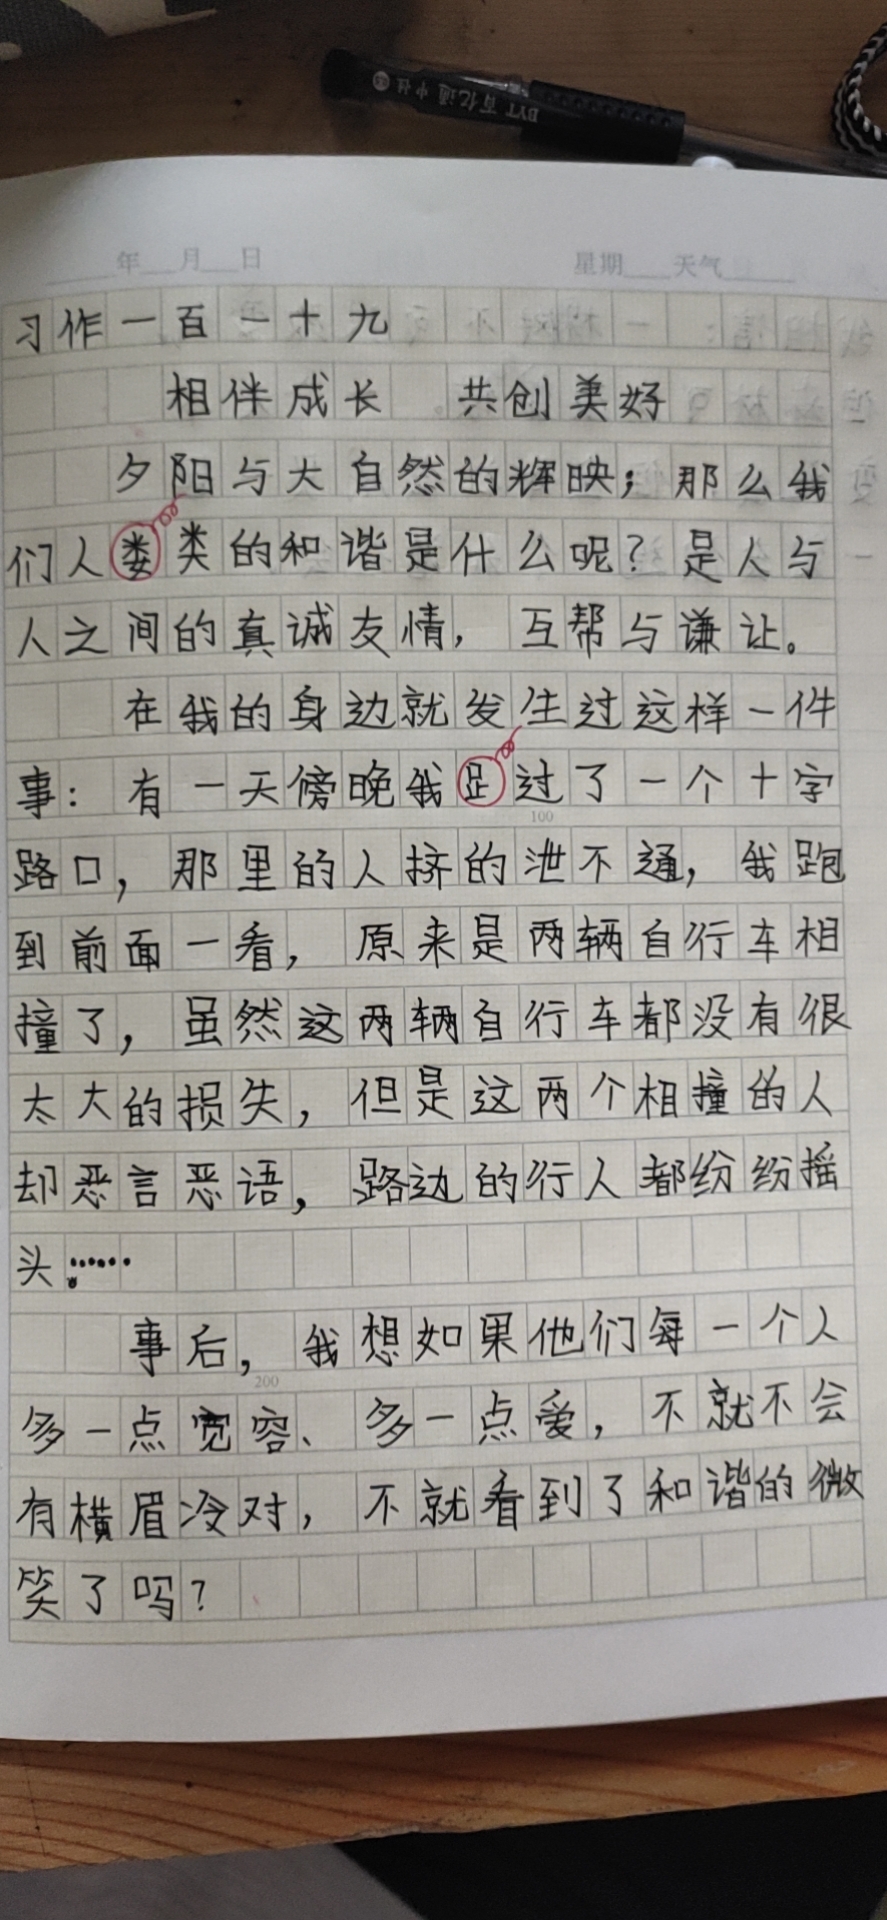 BYT 百亿通中性
年 月 日 星期 天气
习作一百一十九
相伴成长 共创美好
夕阳与大自然的辉映；那么我
们人娄类的和谐是什么呢？是人与
人之间的真诚友情，互帮与谦让。
在我的身边就发生过这样一件
事：有一天傍晚我足过了一个十字
100
路口，那里的人挤的泄不通，我跑
到前面一看，原来是两辆自行车相
撞了，虽然这两辆自行车都没有很
太大的损失，但是这两个相撞的人
却恶言恶语，路边的行人都纷纷摇
头……
事后，我想如果他们每一个人
200
多一点宽容、多一点爱，不就不会
有横眉冷对，不就看到了和谐的微
笑了吗？